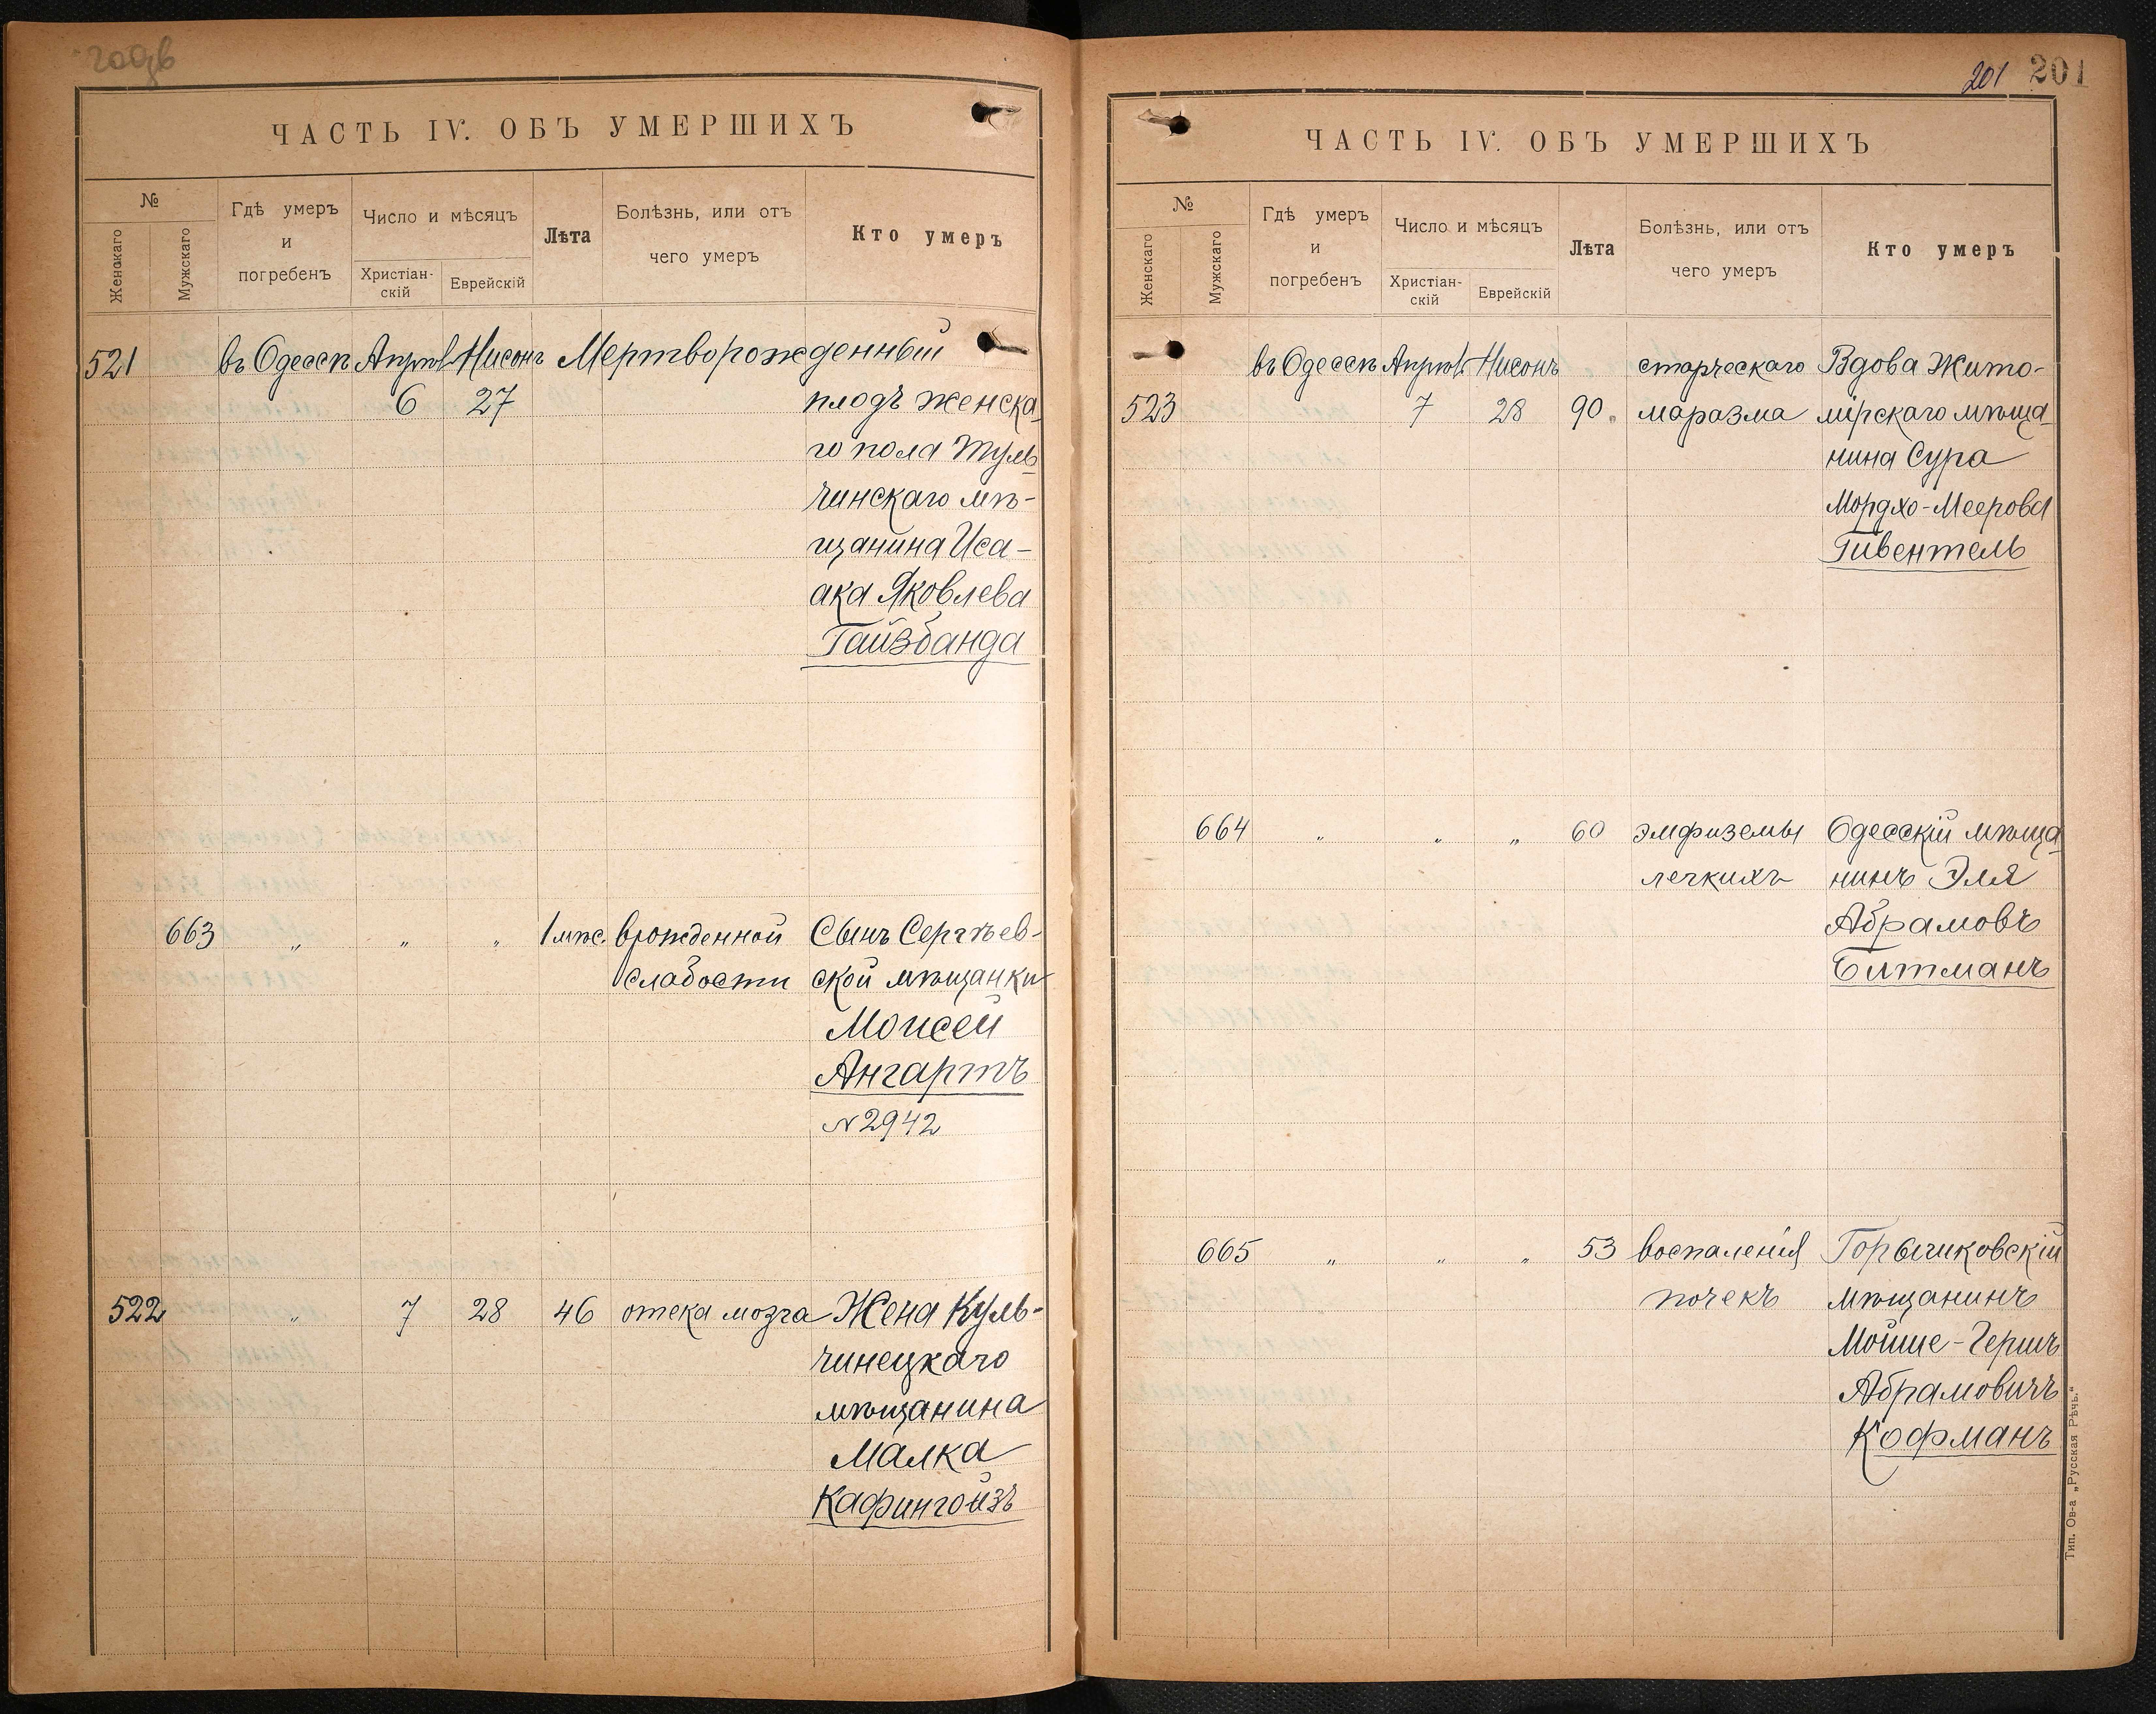 ЧАСТЬ IV. ОБЪ УМЕРШИХЪ
№
Женскаго
Мужскаго
Гдѣ умеръ
и
погребенъ
Число и мѣсяцъ
Христіан-
скій
Еврейскій
Лѣта
Болѣзнь, или отъ
чего умеръ
Кто умеръ
521 въ Одессѣ Апрѣл Нисонъ Мертворожденный
6 27 плодъ женска-
го пола Туль-
чинскаго мѣ-
щанина Иса-
ака Яковлева
Гайзбанда
663 " " " 1 мѣс. врожденной Сынъ Сергѣев-
слабости ской мѣщанки
Моисей
Ангартъ
№2942
522 " 7 28 46 отека мозга Жена Куль-
чинецкаго
мѣщанина
Малка
Кафингойзъ
201 201
ЧАСТЬ IV. ОБЪ УМЕРШИХЪ
№
Женскаго
Мужскаго
Гдѣ умеръ
и
погребенъ
Число и мѣсяцъ
Христіан-
скій
Еврейскій
Лѣта
Болѣзнь, или отъ
чего умеръ
Кто умеръ
въ Одессѣ Апрѣл. Нисонъ старческаго Вдова Жито-
523 7 28 90. маразма мірскаго мѣща-
нина Сура
Мордхо-Меерова
Гивентель
664 " " " 60 эмфиземы Одесскій мѣща-
легкихъ нинъ Эля
Абрамовъ
Битманъ
665 " " " 53 воспаленія
почекъ мѣщанинъ
Мойше-Гершъ
Абрамовичъ
Кофманъ
Тип. Ов-а „Русская Рѣчь."